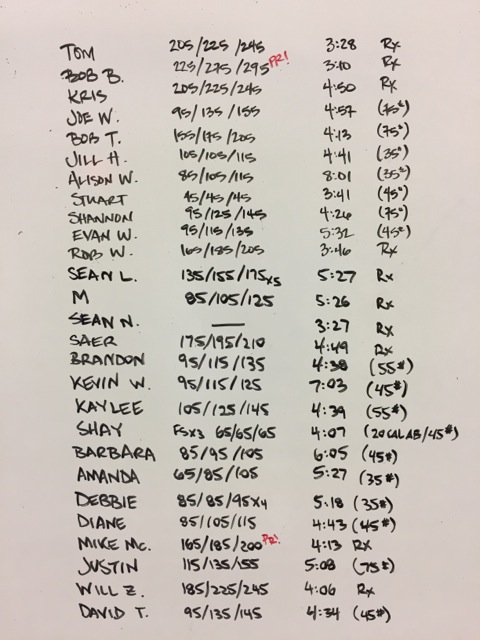 TOM 205/225/245 3:28 Rx
BOB B. 225/275/295 PR! 3:10 Rx
KRIS 205/225/245 4:50 Rx
JOE W. 95/135/155 4:57 (75#)
BOB T. 155/175/205 4:13 (75#)
JILL H. 105/105/115 4:41 (35#)
ALISON W. 85/105/115 8:01 (35#)
STUART 45/45/45 3:41 (45#)
SHANNON 95/125/145 4:26 (75#)
EVAN W. 95/115/135 5:32 (45#)
ROB W. 165/185/205 3:46 Rx
SEAN L. 135/155/175x5 5:27 Rx
M 85/105/125 5:26 Rx
SEAN N. — 3:27 Rx
SAER 175/195/210 4:49 Rx
BRANDON 95/115/135 4:38 (55#)
KEVIN W. 95/115/125 7:03 (45#)
KAYLEE 105/125/145 4:39 (55#)
SHAY FSx3 65/65/65 4:07 (20CAL AB/45#)
BARBARA 85/95/105 6:05 (45#)
AMANDA 65/85/105 5:27 (35#)
DEBBIE 85/85/95x4 5:18 (35#)
DIANE 85/105/115 4:43 (45#)
MIKE MC. 165/185/200 PR! 4:13 Rx
JUSTIN 115/135/155 5:08 (75#)
WILL Z. 185/225/245 4:06 Rx
DAVID T. 95/135/145 4:34 (45#)